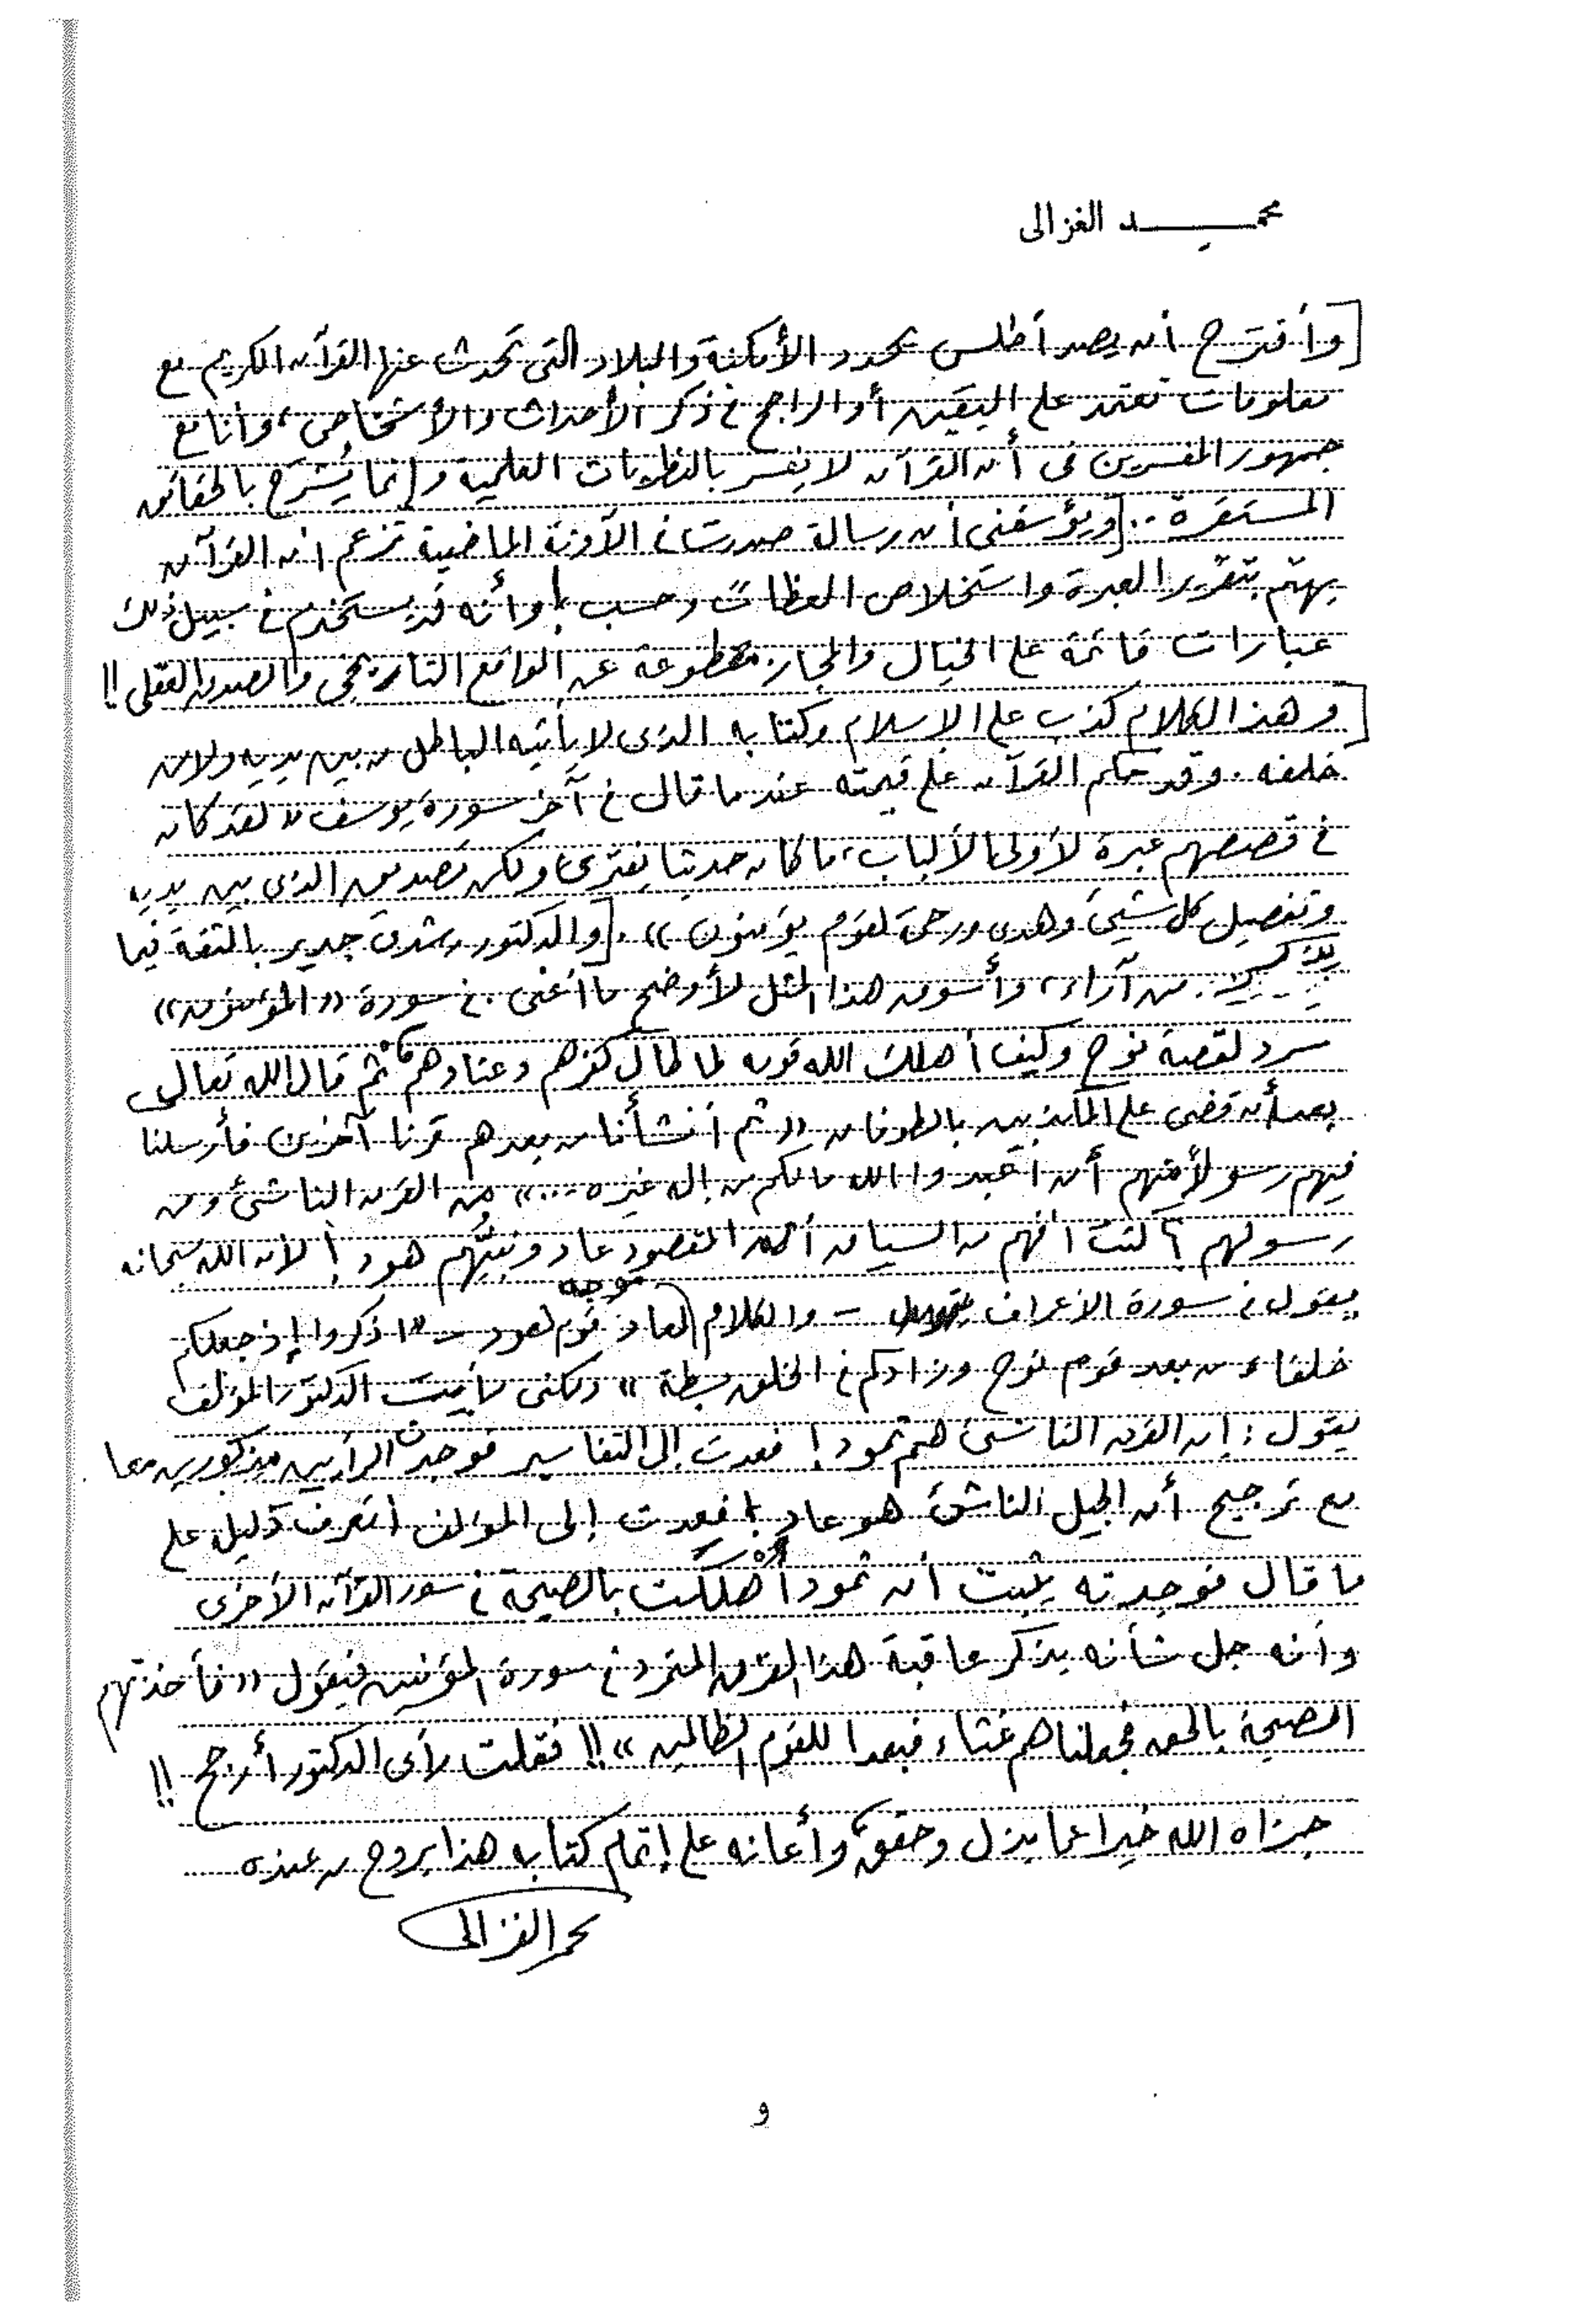 محمد الغزالى
[وأقترح أن يصدر أطلس يحدد الأمكنة والبلاد التى تحدث عنها القرآن الكريم مع
معلومات تعتمد على اليقين أو الراجح فى ذكر الأحداث والأشخاص، وأنا مع
جمهور المفسرين فى أن القرآن لا يفسر بالنظريات العلمية وإنما يُشرح بالحقائق
المستقرة.. [ويؤسفنى أن رسالة صدرت فى الآونة الماضية تزعم أن القرآن
يهتم بتقرير العبرة واستخلاص العظات وحسب! وأنه قد يستخدم فى سبيل ذلك
عبارات قائمة على الخيال والمجاز مقطوعة عن الواقع التاريخى والصدق العقلى!!
[وهذا الكلام كذب على الإسلام وكتابه الذى لا يأتيه الباطل من بين يديه ولا من
خلفه. وقد حكم القرآن على قيمته عندما قال فى آخر سورة يوسف «لقد كان
فى قصصهم عبرة لأولى الألباب، ما كان حديثا يفترى ولكن تصديق الذى بين يديه
وتفصيل كل شيئ وهدى ورحمة لقوم يؤمنون». [والدكتور رشدى جدير بالثقة فيما
يذكر من آراء، وأسوق هذا المثل لأوضح ما أعنى. فى سورة «المؤمنون»
سرد لقصة نوح وكيف أهلك الله قومه لما طال كفرهم وعنادهم، ثم قال الله تعالى
بعد أن قضى على المكذبين بالطوفان «ثم أنشأنا من بعدهم قرنا آخرين فأرسلنا
فيهم رسولا منهم أن اعبدوا الله مالكم من إله غيره...» من القرن الناشئ ومن
رسولهم؟ كنت أفهم من السياق أن المقصود عاد ونبيُّهم هود! لأن الله سبحانه
يقول فى سورة الأعراف – والكلام موجه لعاد قوم هود – «اذكروا إذ جعلكم
خلفاء من بعد قوم نوح وزادكم فى الخلق بسطة» ولكنى رأيت الدكتور المؤلف
يقول: إن القرن الناشئ هم ثمود! فعدت إلى التفاسير فوجدت الرأيين مذكورين معا
مع ترجيح أن الجيل الناشئ هو عاد! فعدت إلى المؤلف أتعرف دليل على
ما قال فوجدته يثبت أن ثمود أُهْلكت بالصيحة فى سور القرآن الأخرى
وأنه جل شأنه يذكر عاقبة هذا القرن المتمرد فى سورة المؤمنين فيقول «فأخذتهم
الصيحة بالحق فجعلناهم غثاء فبعدا للقوم الظالمين»!! فقلت رأى الدكتور أرجح!!
جزاه الله خيرا عما بذل وحقق، وأعانه على إتمام كتابه هذا بروح من عنده
محمد الغزالى
و